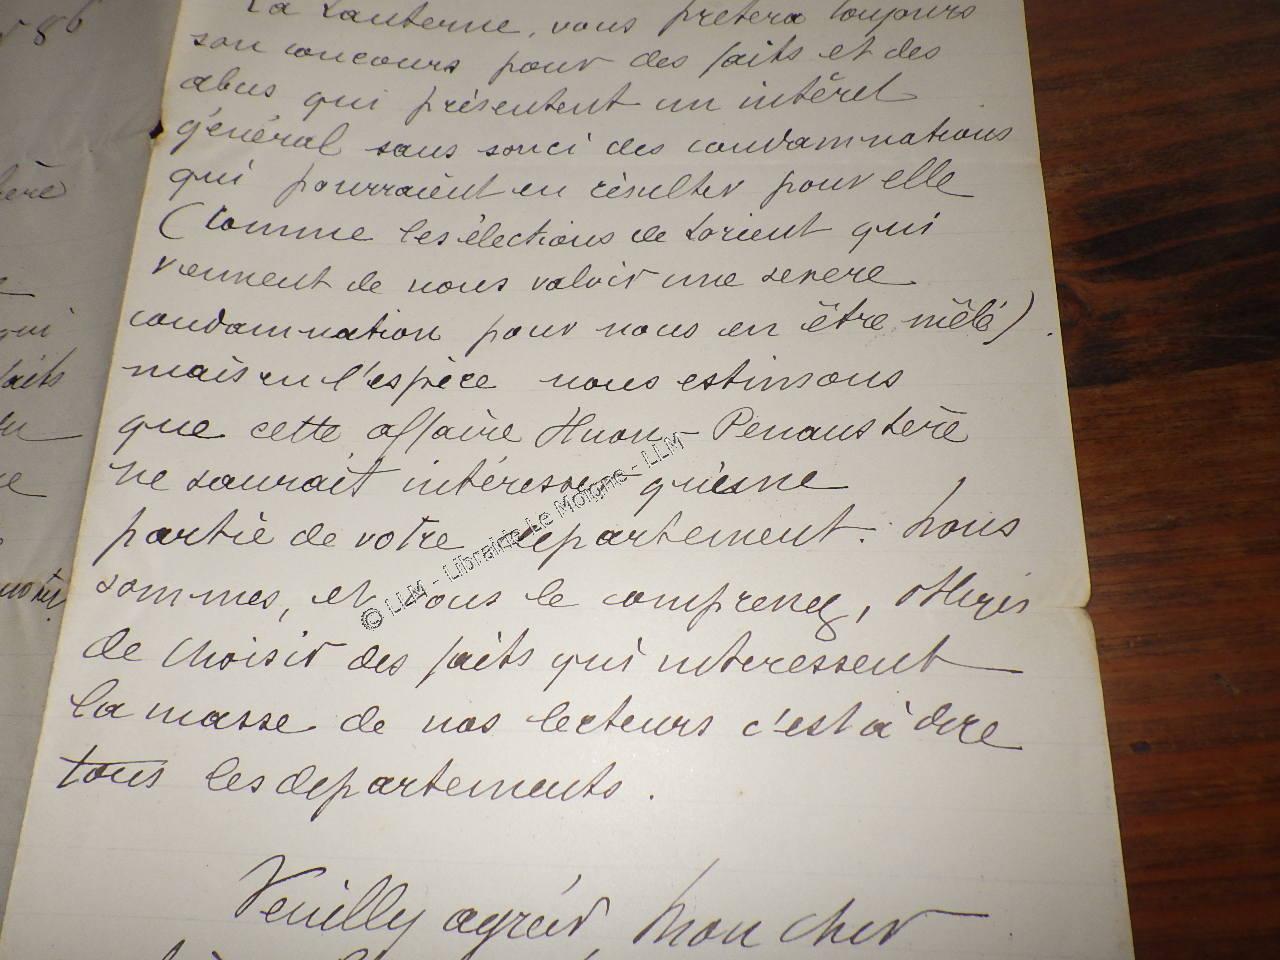 86
La Lanterne, vous prêtera toujours
son concours pour des faits et des
abus qui présentent un intérêt
général sans souci des condamnations
qui pourraient en résulter pour elle
(comme les élections de Lorient qui
viennent de nous valoir une severe
condamnation pour nous en être mêlé)
mais en l'espèce nous estimons
que cette affaire Huon-Penanstère
ne saurait intéresser qu'une
partie de votre departement. Nous
sommes, et vous le comprenez, obligés
de choisir des faits qui interessent
la masse de nos lecteurs c'est à dire
tous les departements.
Veuillez agréer, mon cher
qui
faits
© LLM - Librairie Le Moigne - LLM